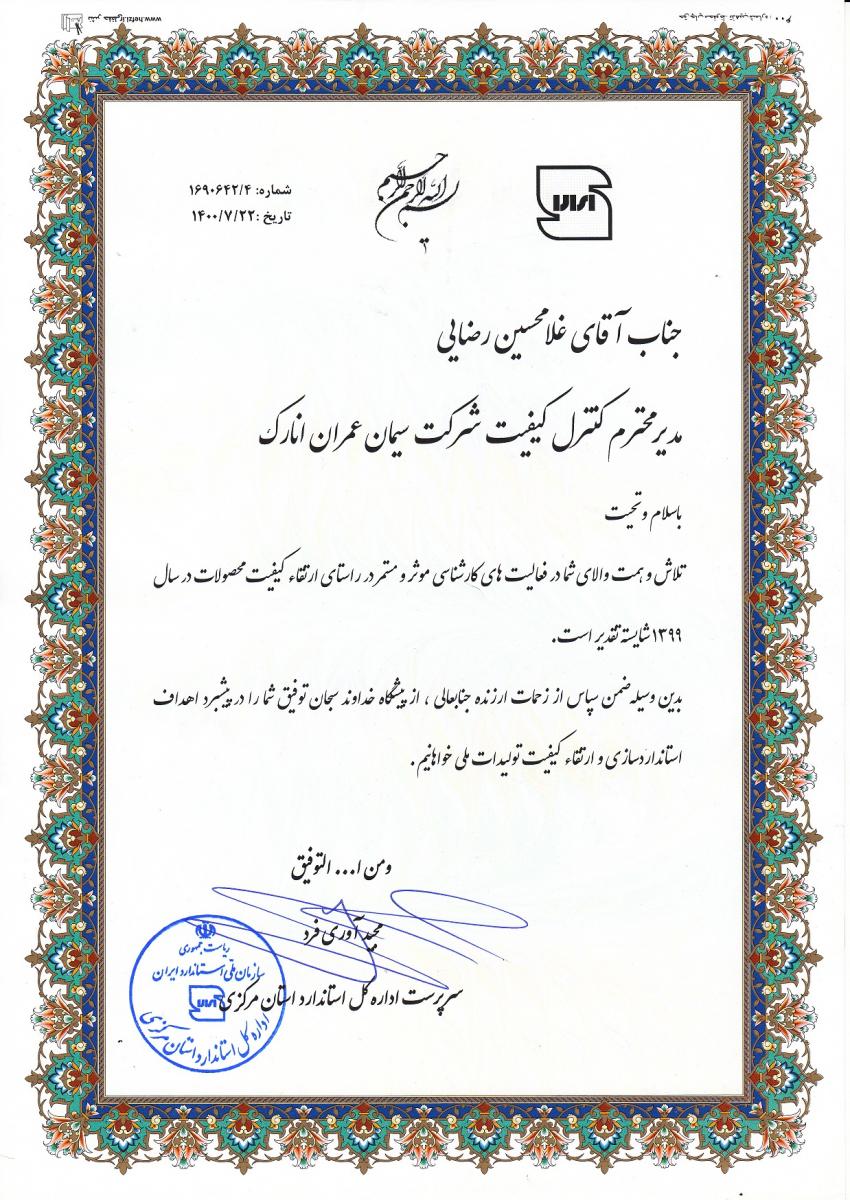 www.hefzi.ir نشر حفظی
بسم الله الرحمن الرحیم
شماره: ۱۶۹۰۶۴۲/۴
تاریخ :۱۴۰۰/۷/۲۲
جناب آقای غلامحسین رضایی
مدیر محترم کنترل کیفیت شرکت سیمان عمران انارک
باسلام و تحیت
تلاش و همت والای شما در فعالیت های کارشناسی موثر و مستمر در راستای ارتقاء کیفیت محصولات در سال
۱۳۹۹ شایسته تقدیر است.
بدین وسیله ضمن سپاس از زحمات ارزنده جنابعالی ، از پیشگاه خداوند سبحان توفیق شما را در پیشبرد اهداف
استانداردسازی و ارتقاء کیفیت تولیدات ملی خواهانیم .
ومن ا... التوفیق
مجید آوری فرد
سرپرست اداره کل استاندارد استان مرکزی
ریاست جمهوری
سازمان ملی استاندارد ایران
اداره کل استاندارد استان مرکزی